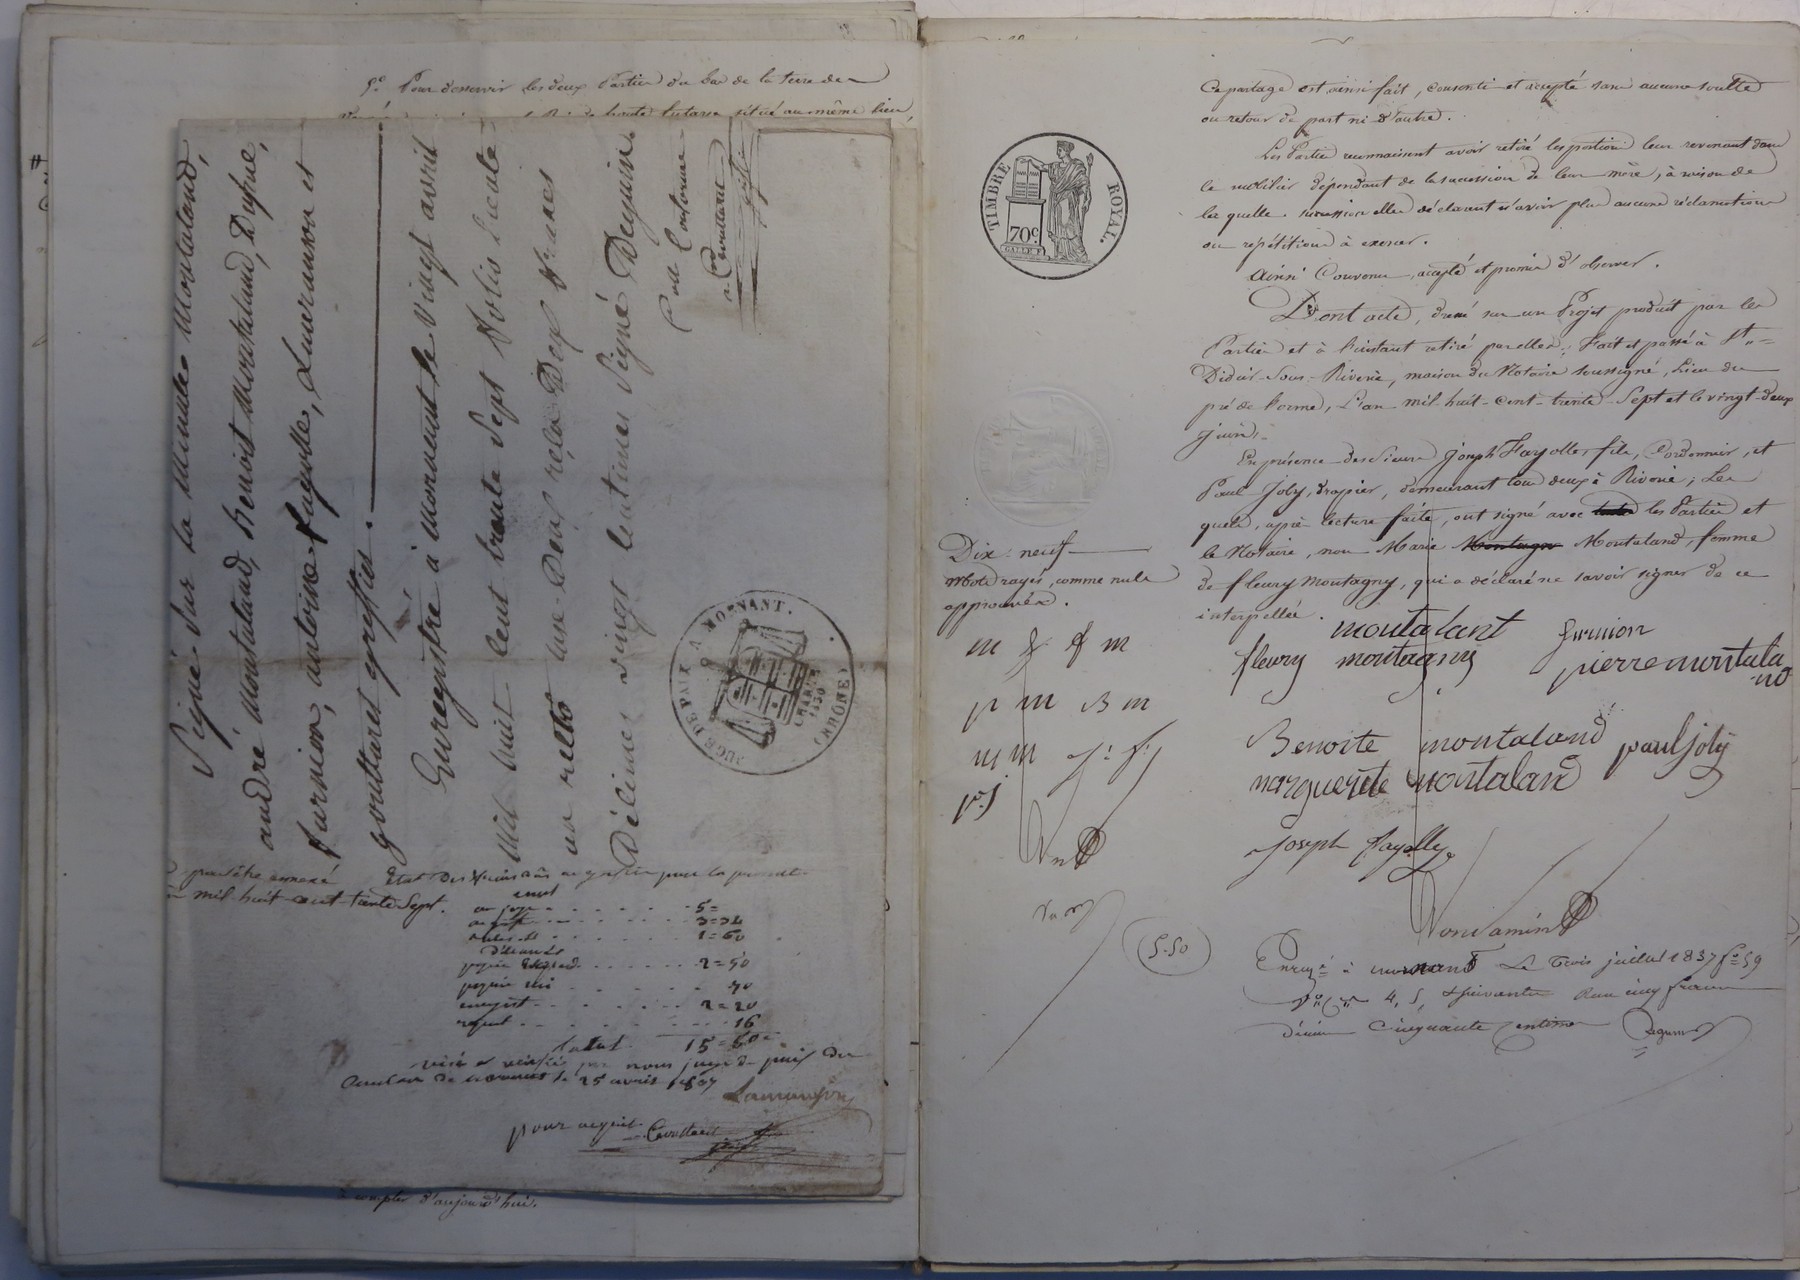 5° Pour desservir les deux Parties du bas de la terre de
situé au même lieu,
Signé sur la minute Montaland,
andré Montaland, Benoist Montaland, Dufrne,
furnion, antoine fayolle, Lauransson et
gouttaret greffier.
Enregistré à mornant le vingt avril
mil huit cent trente sept folio
un recto reçu Deux francs
Décimes vingt centimes Signé Deguin
Pour Copie Conforme
par être annexé
mil-huit-cent-trente-sept.
Etat des pour la présente
au juge 5=
3=34
1=60
Débourcés
2=50
70
enregist 2=20
16
total 15=60
visé et vérifié par nous juge de paix du
Canton de mornant le 25 avril 1837
pour acquit
JUGE DE PAIX A MORNANT.
CHARTE 1830
(RHÔNE)
à compter d'aujourd'hui.
TIMBRE ROYAL.
70c.
Ce partage est ainsi fait, consenti et accepté sans aucune soulte
ou retour de part ni d'autre.
Les Parties reconnaissent avoir retiré les portions leur revenant dans
le mobilier dépendant de la succession de leur mère, à raison de
laquelle succession elles déclarent n'avoir plus aucune réclamation
ou répétition à exercer.
Ainsi convenu, accepté et promis d'observer.
Dont acte, dressé sur un Projet produit par les
Parties et à l'instant retiré par elles; Fait et passé à St.-
Didier-Sous-Riverie, maison du Notaire soussigné, Lieu du
pré de l'orme, L'an mil-huit-cent-trente-Sept et le vingt-deux
juin.
En présence des Sieurs Joseph Fayolle, fils, Cordonnier, et
Paul Joly, drapier, demeurant tous deux à Riverie; Les
quels, après lecture faite, ont signé avec les Parties et
le Notaire, non Marie Montagny Montaland, femme
de fleury Montagny, qui a déclaré ne savoir signer de ce
interpellée.
Dix-neuf
mots rayés, comme nuls
approuvés.
m f f m
p m B m
m m j. f.
p. j
montalant furnion
fleury montagny pierre montala
-nd
Benoite montaland paul joly
marguerite montaland
Joseph fayolle
Vondamin
5-50
Enregé à mornant Le trois juillet 1837 fo 59
Vo Ces 4, 5, & suivantes Reçu cinq francs
décime Cinquante centimes Deguin